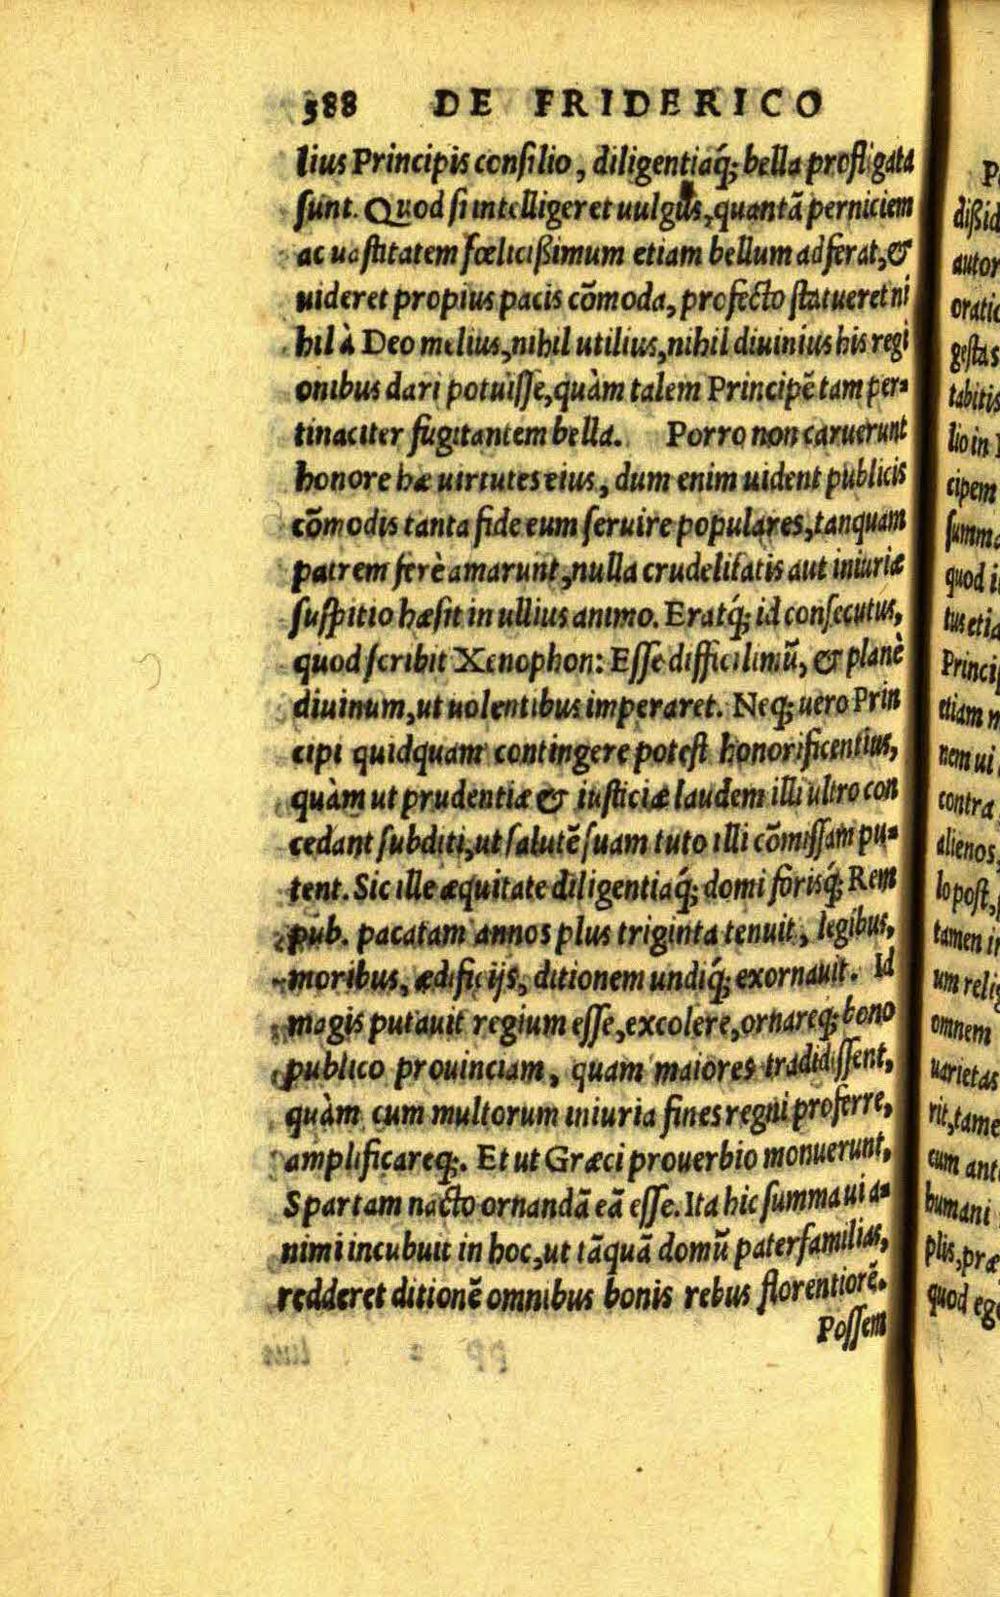 588 DE FRIDERICO
lius Principis consilio, diligentiaq́; bella profligata
sunt. Quod si intelligeret uulgus, quantā perniciem
ac uastitatem fœlicißimum etiam bellum adferat, &
uideret propius pacis cōmoda, profecto statueret ni
hil à Deo melius, nihil utilius, nihil diuinius his regi
onibus dari potuisse, quàm talem Principē tam per-
tinaciter fugitantem bella. Porro non caruerunt
honore hæ uirtutes eius, dum enim uident publicis
cōmodis tanta fide eum seruire populares, tanquam
patrem ferè amarunt, nulla crudelitatis aut iniuriæ
suspitio hæsit in ullius animo. Eratq́; id consecutus,
quod scribit Xenophon: Esse difficilimū, & planè
diuinum, ut uolentibus imperaret. Neq; uero Prin
cipi quidquam contingere potest honorificentius,
quàm ut prudentiæ & iusticiæ laudem illi ultro con
cedant subditi, ut salutē suam tuto illi cōmissam pu-
tent. Sic ille æquitate diligentiaq́; domi forisq́; Rem
pub. pacatam annos plus triginta tenuit, legibus,
moribus, ædificijs, ditionem undiq́; exornauit. Id
magis putauit regium esse, excolere, ornareq; bono
publico prouinciam, quam maiores tradidissent,
quàm cum multorum iniuria fines regni proferre,
amplificareq;. Et ut Græci prouerbio monuerunt,
Spartam nacto ornandā eā esse. Ita hic summa ui a-
nimi incubuit in hoc, ut tāquā domū paterfamilias,
redderet ditionē omnibus bonis rebus florentiorē.
Possem